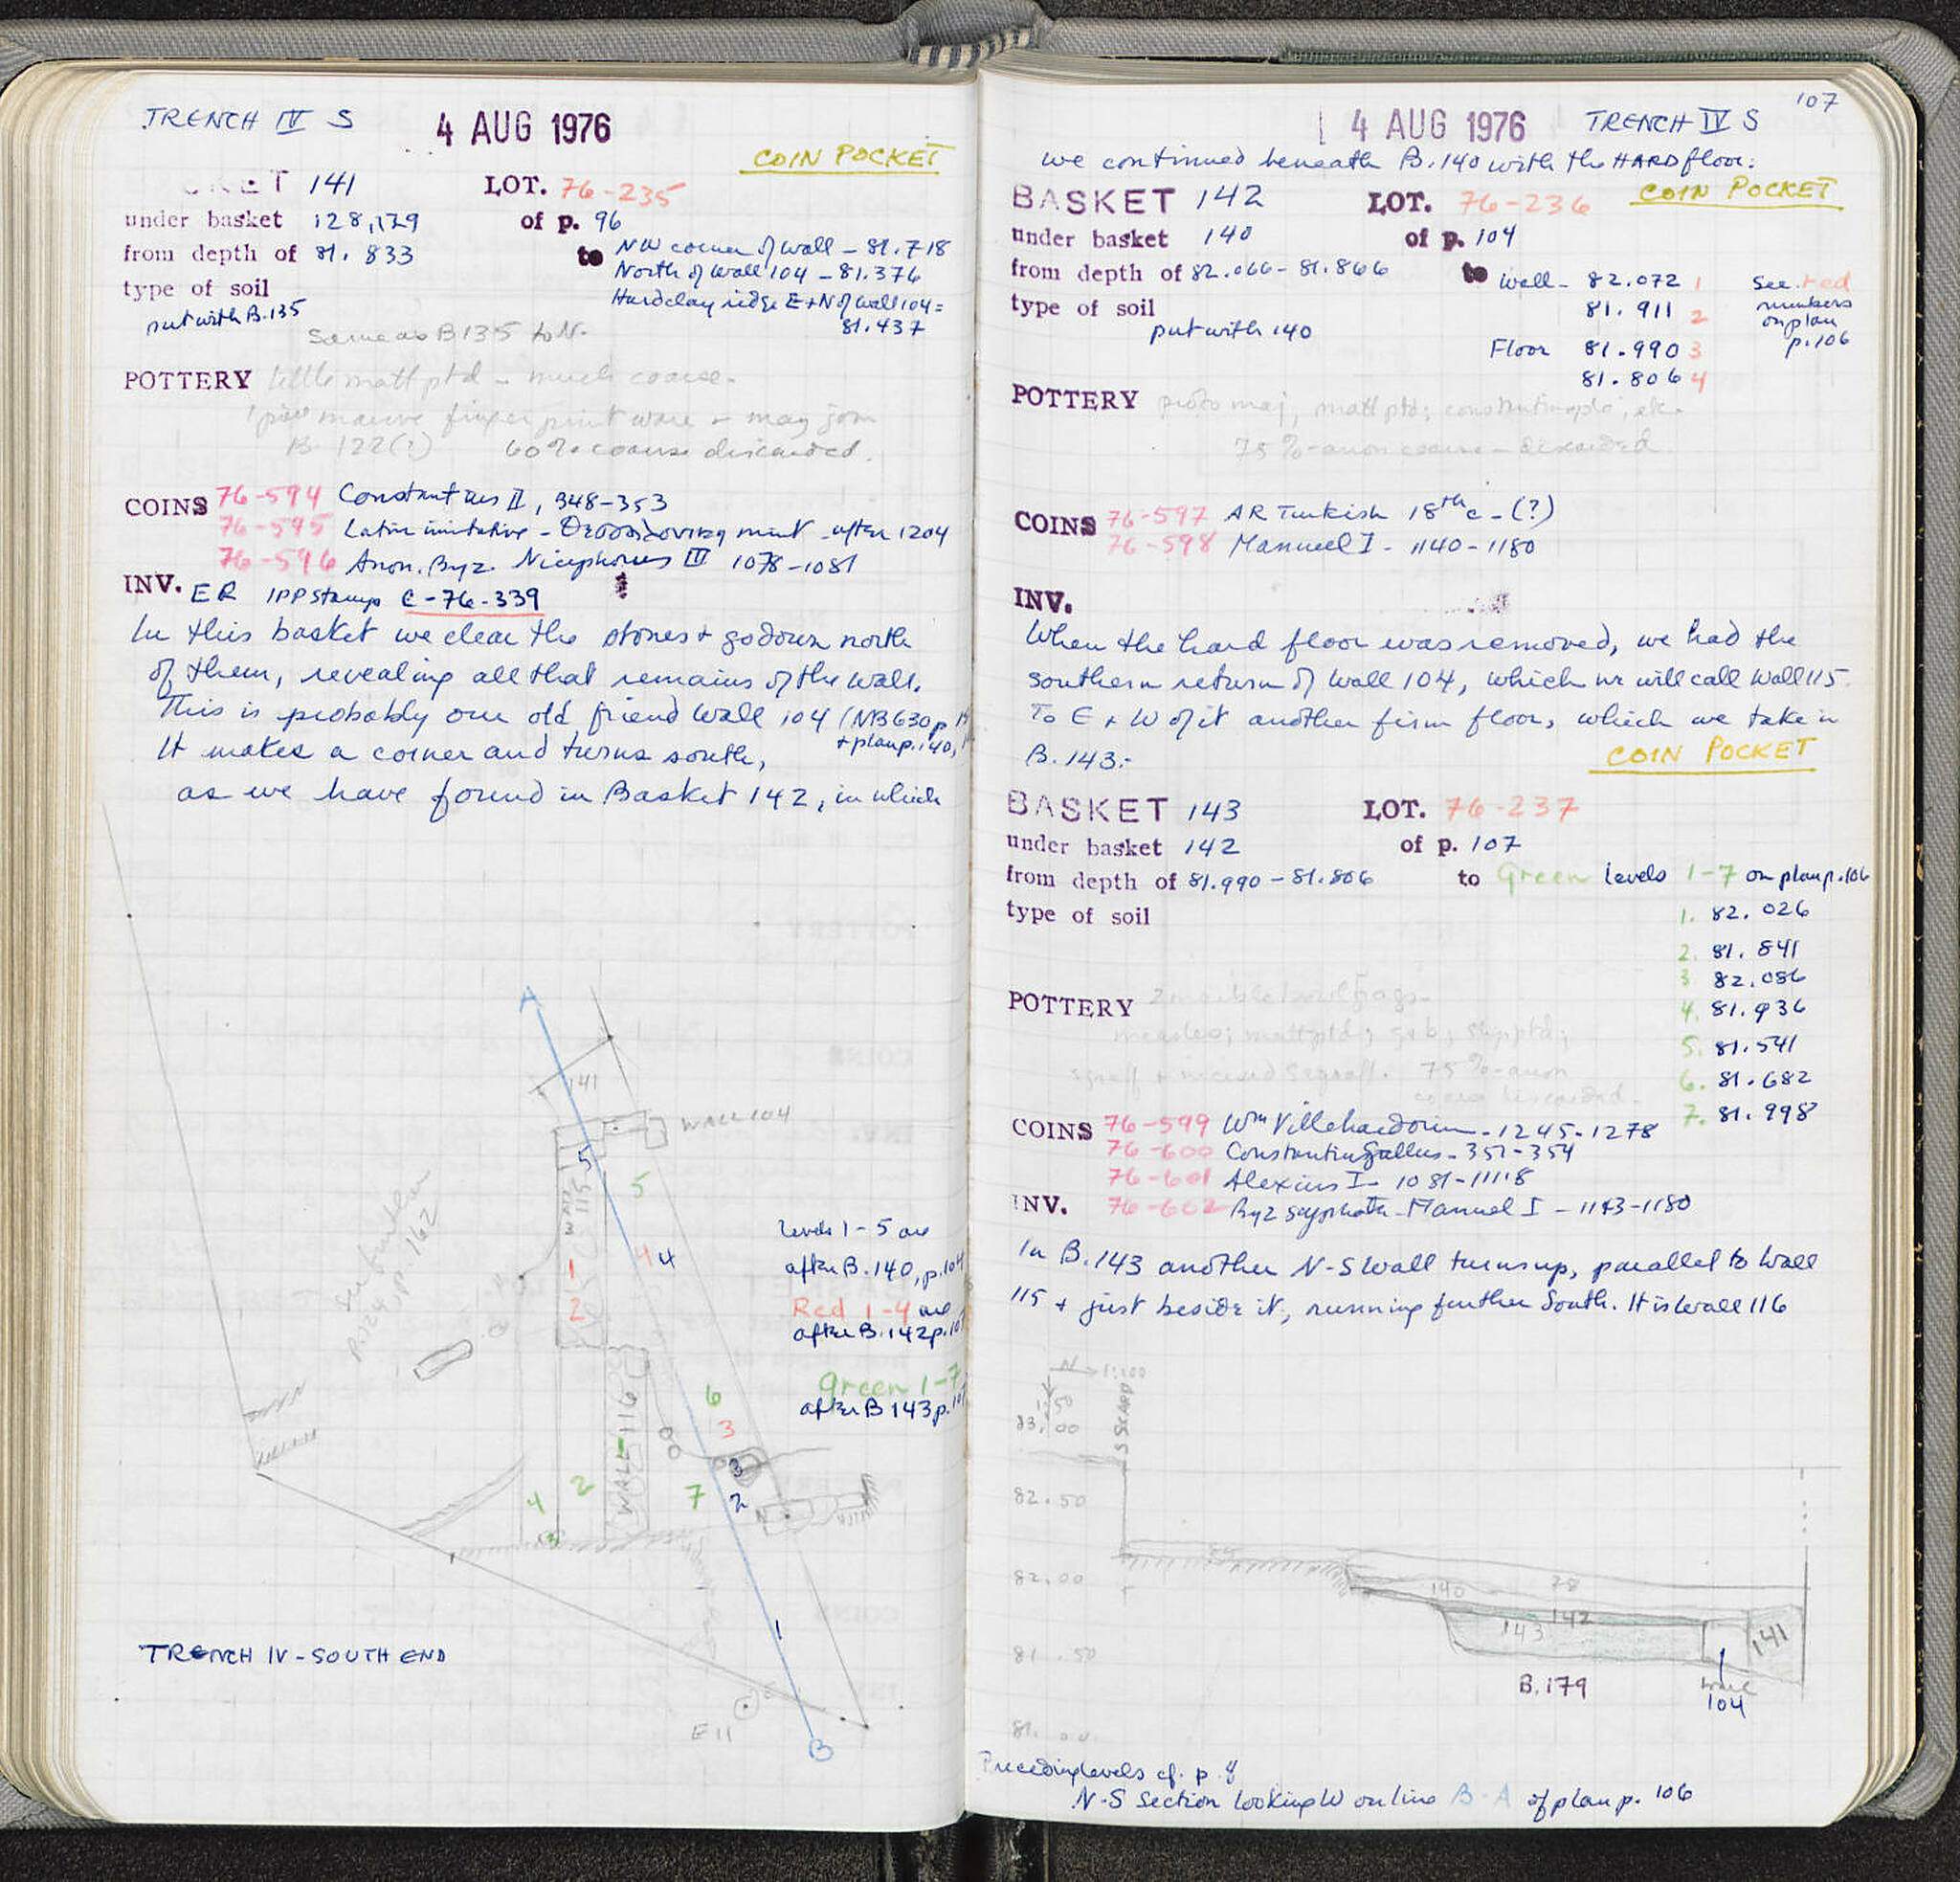 TRENCH IV S
4 AUG 1976
COIN POCKET
141 LOT. 76-235
under basket 128,129 of p. 96
from depth of 81.833 to NW corner of wall - 81.718
North of wall 104 - 81.376
Hard clay ridge E+N of wall 104 =
81.437
type of soil
put with B.135
Same as B135 to N.
POTTERY little matt ptd - much coarse.
1 piece mauve finger print ware - may join
B. 122(?) 60% coarse discarded.
COINS 76-594 Constantius II, 348-353
76-595 Latin imitative - mint - after 1204
76-596 Anon. Byz. Nicephorus III 1078-1081
INV. ER IPP Stamps C-76-339
In this basket we clear the stones + go down north
of them, revealing all that remains of the wall.
This is probably our old friend Wall 104 (NB630 p.
+ plan p. 140,
It makes a corner and turns south,
as we have found in Basket 142, in which
A
141
WALL 104
5
WALL 115
5
1
4 4
2
Levels 1-5 are
after B.140, p.104
Red 1-4 are
after B.142 p.107
Green 1-7
after B 143 p.107
See further
p.124, p.162
WALL 116
6
3
3
4 2 7 2
3
1
TRENCH IV - SOUTH END
E11
B
107
4 AUG 1976 TRENCH IV S
we continued beneath B.140 with the HARD floor:
COIN POCKET
BASKET 142 LOT. 76-236
under basket 140 of p. 104
from depth of 82.066 - 81.866 to Wall - 82.072 1
81.911 2
Floor 81.990 3
81.806 4
See red
numbers
on plan
p.106
type of soil
put with 140
POTTERY proto maj, matt ptd; constantinople, etc.
75% - anon coarse - discarded.
COINS 76-597 AR Turkish 18th c - (?)
76-598 Manuel I - 1140-1180
INV.
When the hard floor was removed, we had the
southern return of Wall 104, which we will call Wall 115.
To E + W of it another firm floor, which we take in
B.143:-
COIN POCKET
BASKET 143 LOT. 76-237
under basket 142 of p. 107
from depth of 81.990 - 81.806 to Green levels 1-7 on plan p.106
type of soil
1. 82.026
2. 81.841
3 82.086
4. 81.936
5. 81.541
6. 81.682
7. 81.998
POTTERY 2 marble bowl frags.
measles; matt ptd; g+b; slip ptd;
sgraff + incised sgraff. 75% - anon
coarse discarded.
COINS 76-599 Wm Villehardouin - 1245-1278
76-600 Constantius Gallus - 351-354
76-601 Alexius I - 1081-1118
INV. 76-602 Byz scyphate - Manuel I - 1143-1180
In B.143 another N-S wall turns up, parallel to Wall
115 + just beside it, running further South. It is Wall 116
N 1:100
1:50
83.00
S SCARP
82.50
82.00
140 78
142
143
141
81.50
B.179
Wall
104
Preceding levels cf. p. 8
N-S Section looking W on line B-A of plan p. 106